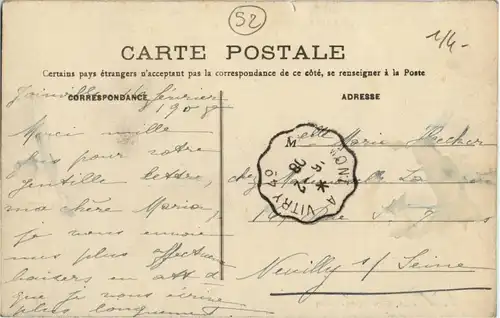 52
1/4-
CARTE POSTALE
Certains pays étrangers n'acceptant pas la correspondance de ce côté, se renseigner à la Poste
CORRESPONDANCE
ADRESSE
Joinville février
1908
Merci mille
fois pour votre
gentille lettre,
ma chère Maria,
je vous envoie
mes plus affectueux
baisers en att. d
que je vous écrive
plus longuement.
M
MONT A VITRY
5-2
08
elle Maria
chez
Neuilly s/ Seine